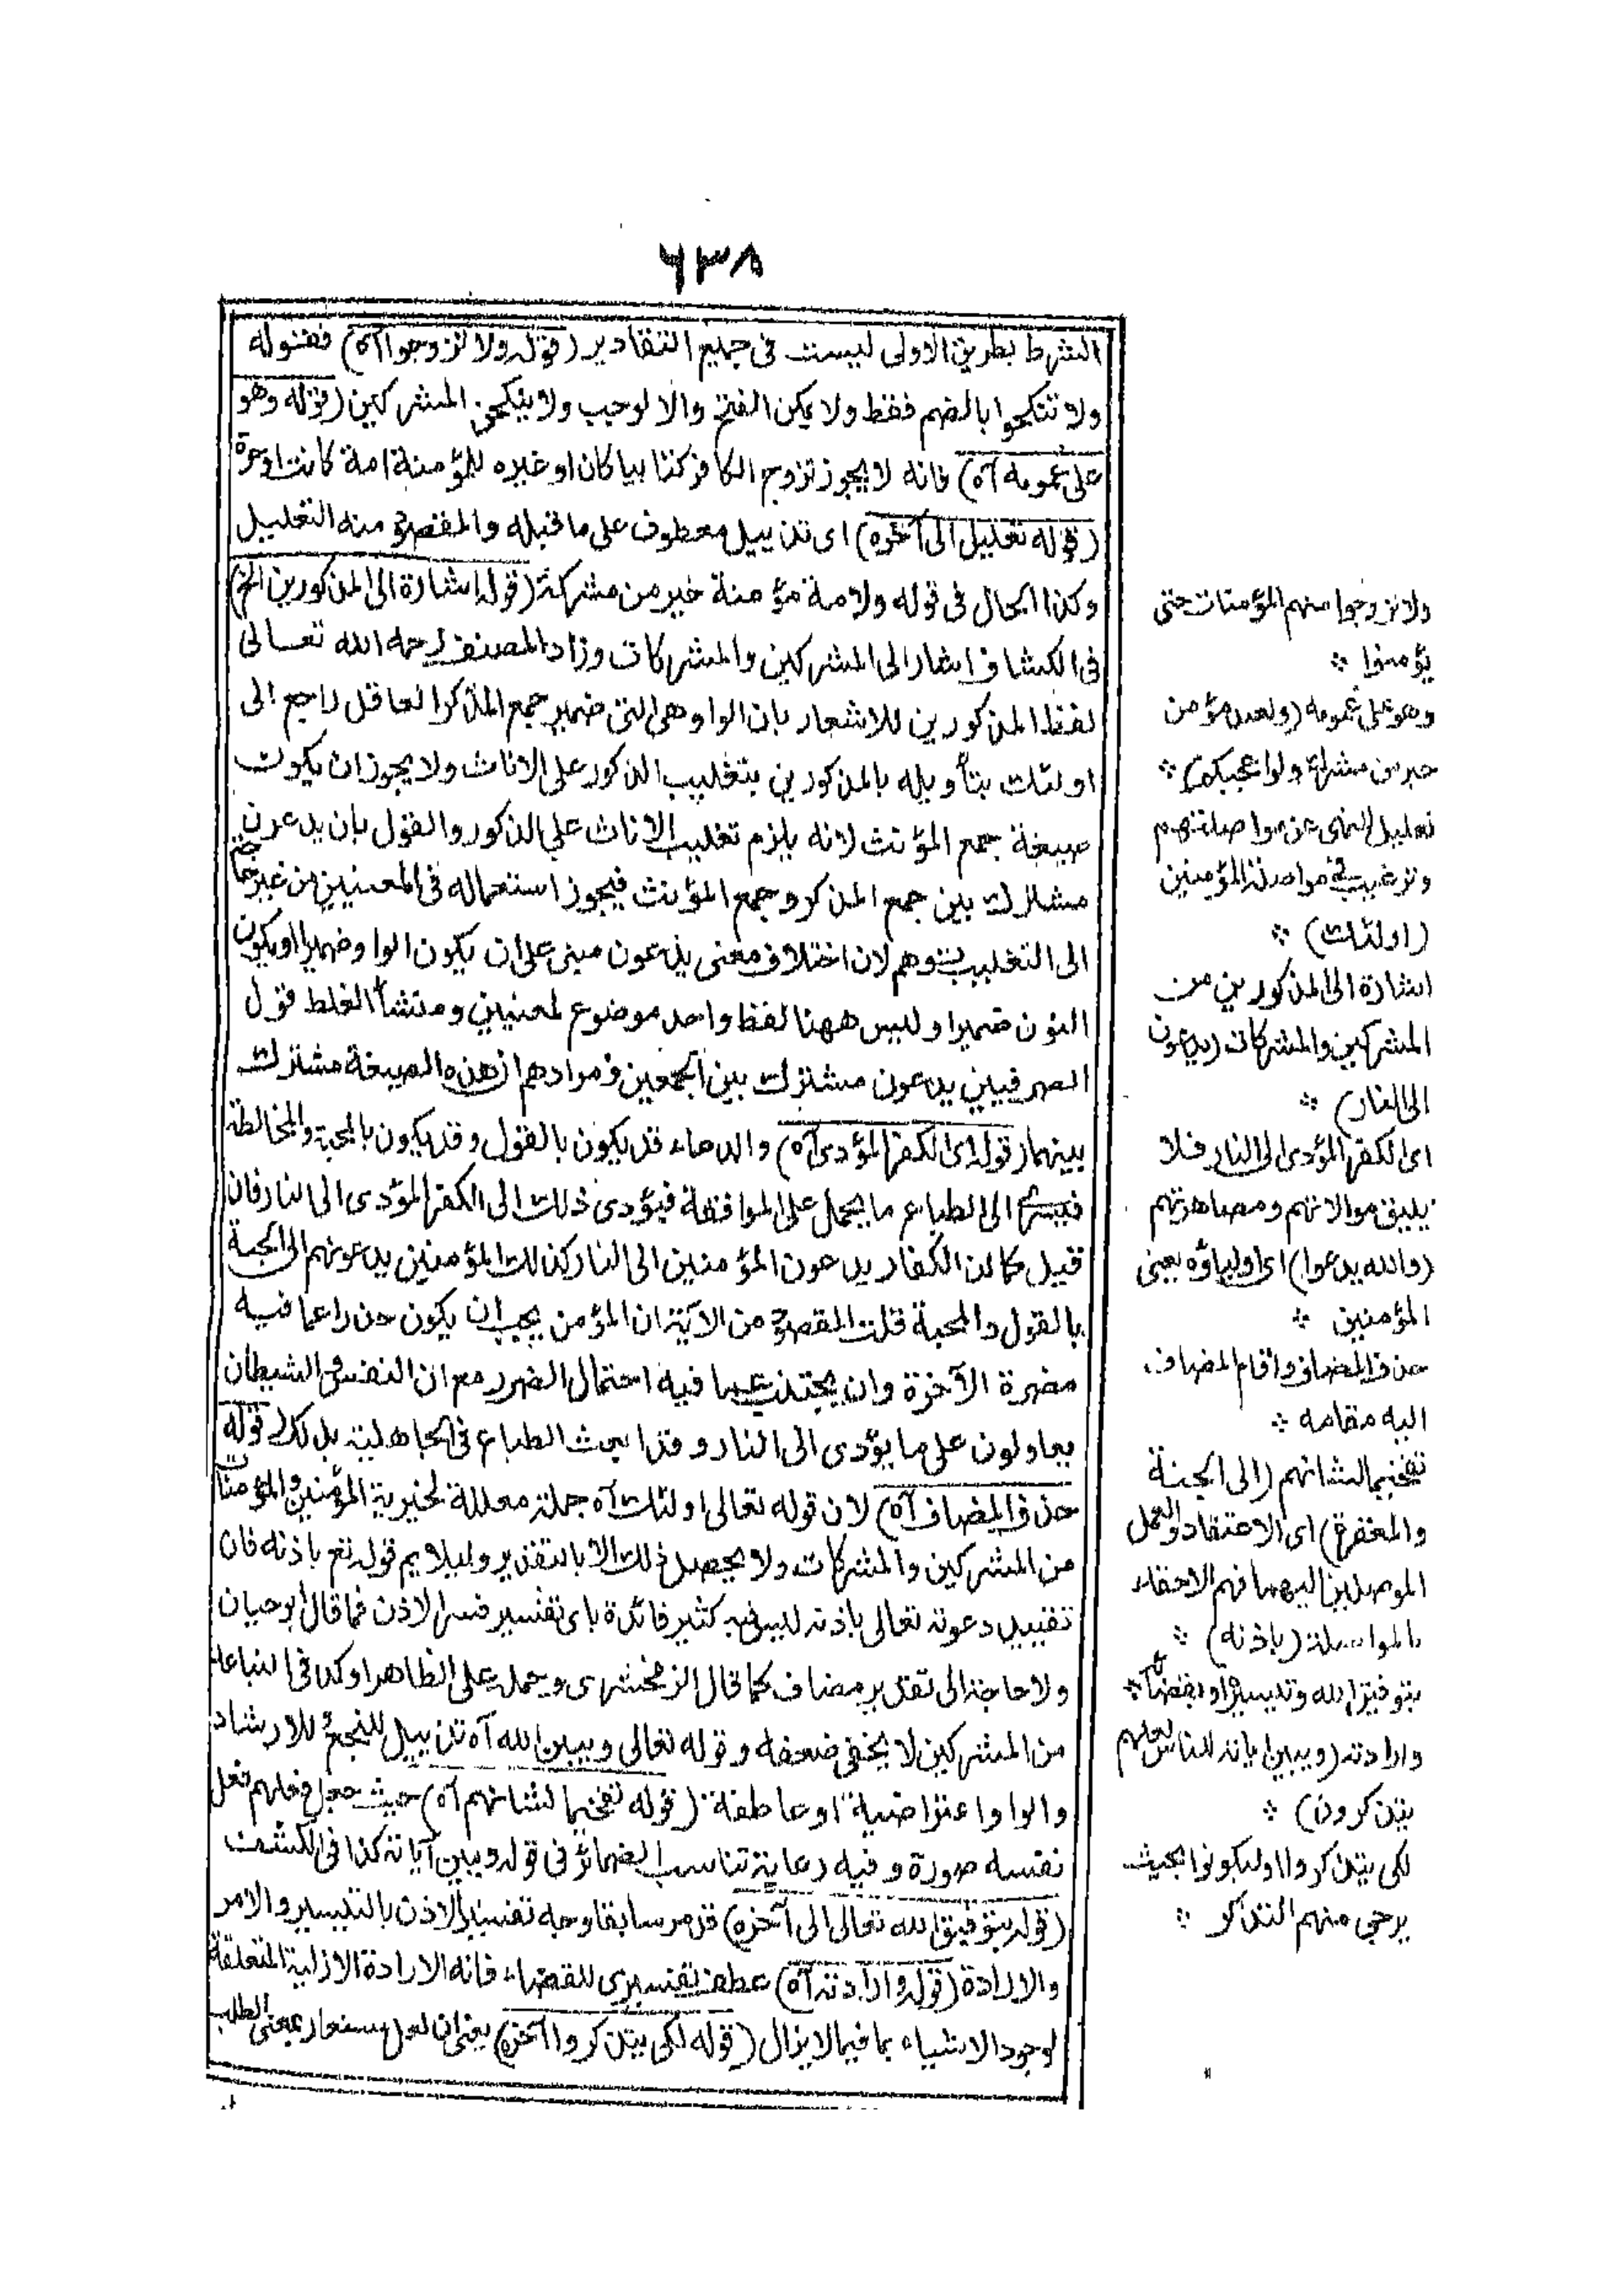 ٦٣٨
الشرط بطريق الاولى ليست فى جميع التقادير (قوله ولا تزوجوا آه) فقوله
ولا تنكحوا بالضم فقط ولا يمكن الفتح والا لوجب ولا ينكحن المشركين (قوله وهو
على عمومه آه) فانه لا يجوز تزوج الكافر كتابيا كان او غيره للمؤمنة امة كانت او حرة
(قوله تعليل الى آخره) اى تذييل معطوف على ما قبله والمقصود منه التعليل
وكذا الحال فى قوله ولامة مؤمنة خير من مشركة (قوله اشارة الى المذكورين الخ)
فى الكشاف اشار الى المشركين والمشركات وزاد المصنف رحمه الله تعالى
لفظ المذكورين للاشعار بان الواو وهى التى ضمير جمع المذكر العاقل راجع الى
اولئك بتأويله بالمذكورين بتغليب الذكور على الاناث ولا يجوز ان يكون
صيغة جمع المؤنث لانه يلزم تغليب الاناث على الذكور والقول بان يدعون
مشترك بين جمع المذكر وجمع المؤنث فيجوز استعماله فى المعنيين من غير حاجة
الى التغليب توهم لان اختلاف معنى يدعون مبنى على ان يكون الواو ضميرا او يكون
النون ضميرا وليس ههنا لفظ واحد موضوع لمعنيين ومنشأ الغلط قول
الصرفيين يدعون مشترك بين الجمعين ومرادهم ان هذه الصيغة مشترك
بينهما (قوله اى الكفر المؤدى آه) والدعاء قد يكون بالقول وقد يكون بالمحبة والمخالطة
الى الطباع ما يحمل على الموافقة فيؤدى ذلك الى الكفر المؤدى الى النار فان
قيل كما ان الكفار يدعون المؤمنين الى النار كذلك المؤمنين يدعونهم الى الجنة
بالقول والمحبة قلت المقصود من الآية ان المؤمن يجب ان يكون حذرا عما فيه
مضرة الآخرة وان يجتنب عما فيه احتمال الضرر مع ان النفس والشيطان
يعاونون على ما يؤدى الى النار وقد الفت الطباع فى الجاهلية بذلك (قوله
حذف المضاف آه) لان قوله تعالى اولئك آه جملة معللة لخيرية المؤمنين والمؤمنات
من المشركين والمشركات ولا يحصل ذلك الا بالتقدير وليلايم قوله تع باذنه فان
تقييد دعوته تعالى باذنه ليس فيه كثير فائدة باى تفسير فسر الاذن فما قال ابو حيان
ولا حاجة الى تقدير مضاف كما قال الزمخشرى ويحمل على الظاهر اوكد فى التباعد
من المشركين لا يخفى ضعفه وقوله تعالى ويبين الله آه تذييل للنصح للارشاد
والواو اعتراضية او عاطفة (قوله تفخيما لشانهم آه) حيث جعل فعلهم فعل
نفسه صورة وفيه رعاية تناسب الضمائر فى قوله ويبين آياته كذا فى الكشف
(قوله بتوفيق الله تعالى الى آخره) قد مر سابقا وجه تفسير الاذن بالتيسير والامر
والارادة (قوله وارادته آه) عطف تفسيرى للقضاء فانه الارادة الازلية المتعلقة
لوجود الاشياء بما فيما لا يزال (قوله لكى يتذكروا آخره) يعنى ان لعل مستعار بمعنى الطلب
ولا تزوجوا منهم المؤمنات حتى
يؤمنوا
وهو على عمومه (ولعبد مؤمن
خير من مشرك ولو اعجبكم)
تعليل للنهى عن مواصلتهم
وترغيب فى مواصلة المؤمنين
(اولئك)
اشارة الى المذكورين من
المشركين والمشركات (يدعون
الى النار)
اى الكفر المؤدى الى النار فلا
يليق موالاتهم ومصاهرتهم
(والله يدعوا) اى اولياؤه يعنى
المؤمنين
حذف المضاف واقام المضاف
اليه مقامه
تفخيما لشانهم (الى الجنة
والمغفرة) اى الاعتقاد والعمل
الموصلين اليهما فهم الاحقاء
بالمواصلة (باذنه)
بتوفيق الله وتيسيره او بقضائه
وارادته (ويبين اياته للناس لعلهم
يتذكرون)
لكى يتذكروا او ليكونوا بحيث
يرجى منهم التذكر